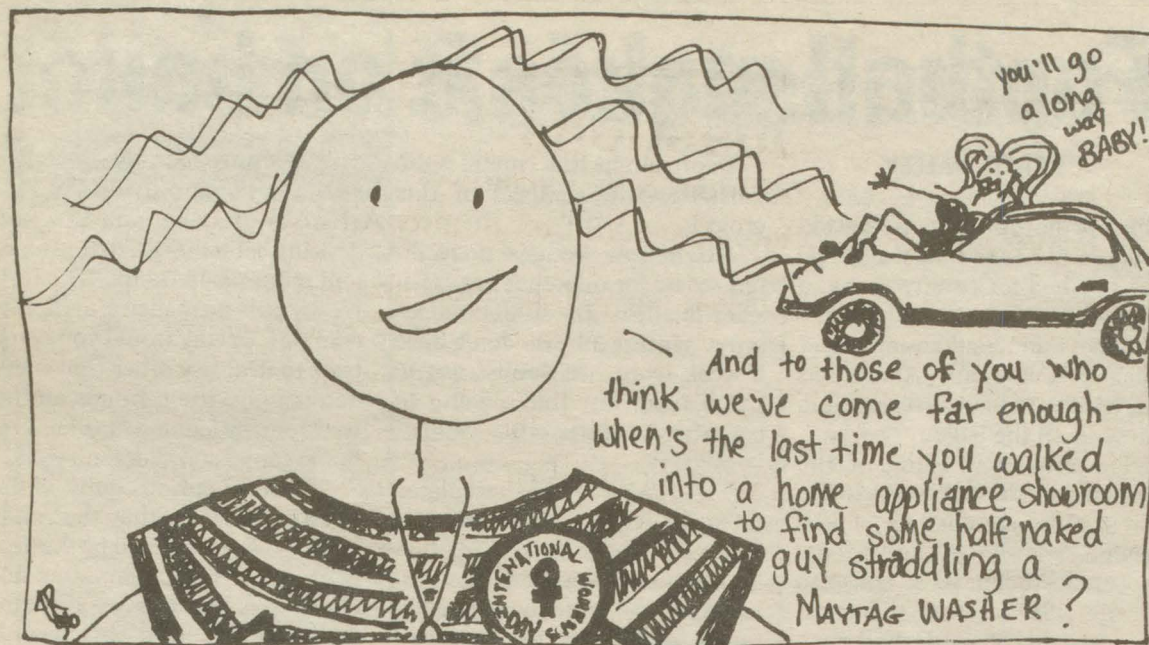 you'll go
a long
way
BABY!
And to those of you who
think we've come far enough—
when's the last time you walked
into a home appliance showroom
to find some half naked
guy straddling a
MAYTAG WASHER?
INTERNATIONAL
WOMEN'S
DAY